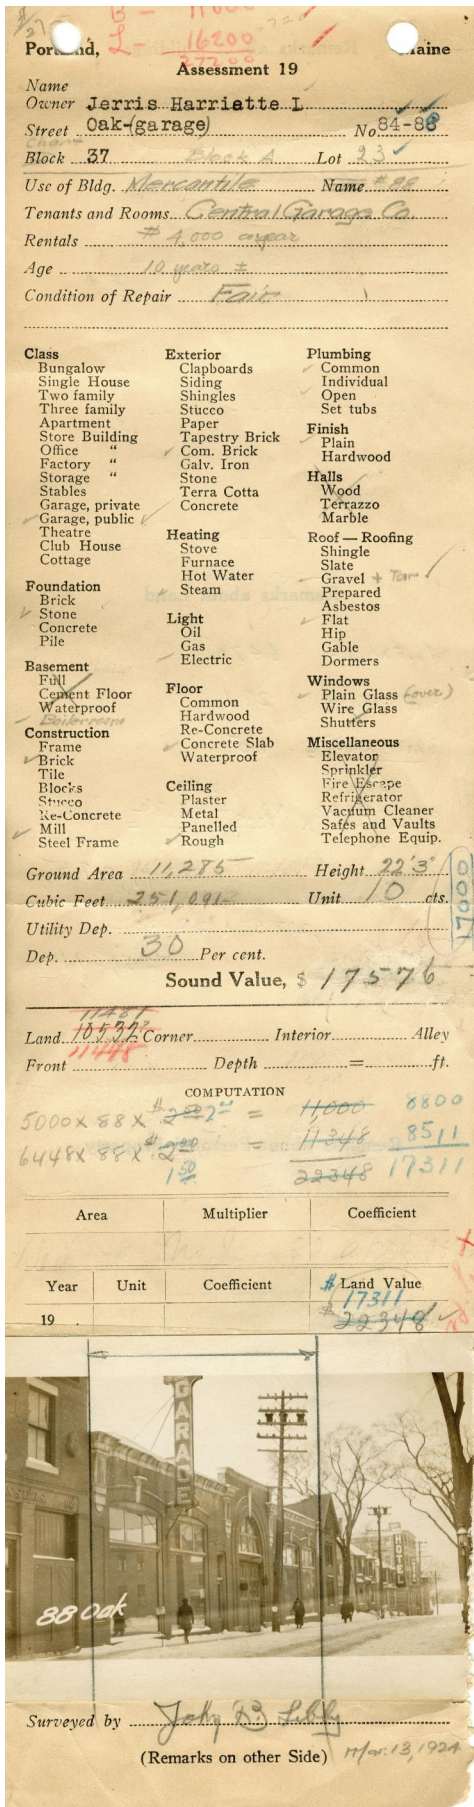 B - 11000
L - 16200
27200
Portland, Maine
Assessment 19
Name
Owner Jerris Harriette L
Street Oak-(garage) No 84-88
Chart
Block 37 Block A Lot 23
Use of Bldg. Mercantile Name #88
Tenants and Rooms Central Garage Co.
Rentals $ 4,000 a year
Age 10 years ±
Condition of Repair Fair
Class
Bungalow
Single House
Two family
Three family
Apartment
Store Building
Office "
Factory "
Storage "
Stables
Garage, private
Garage, public
Theatre
Club House
Cottage
Foundation
Brick
Stone
Concrete
Pile
Basement
Full
Cement Floor
Waterproof
Boilerroom
Construction
Frame
Brick
Tile
Blocks
Stucco
Re-Concrete
Mill
Steel Frame
Exterior
Clapboards
Siding
Shingles
Stucco
Paper
Tapestry Brick
Com. Brick
Galv. Iron
Stone
Terra Cotta
Concrete
Heating
Stove
Furnace
Hot Water
Steam
Light
Oil
Gas
Electric
Floor
Common
Hardwood
Re-Concrete
Concrete Slab
Waterproof
Ceiling
Plaster
Metal
Panelled
Rough
Plumbing
Common
Individual
Open
Set tubs
Finish
Plain
Hardwood
Halls
Wood
Terrazzo
Marble
Roof — Roofing
Shingle
Slate
Gravel + Tar
Prepared
Asbestos
Flat
Hip
Gable
Dormers
Windows
Plain Glass (over)
Wire Glass
Shutters
Miscellaneous
Elevator
Sprinkler
Fire Escape
Refrigerator
Vacuum Cleaner
Safes and Vaults
Telephone Equip.
Ground Area 11,285 Height 22'3"
Cubic Feet 251,091 Unit 10 cts.
17000
Utility Dep.
Dep. 30 Per cent.
Sound Value, $ 17576
11481
Land 10532 Corner Interior Alley
11448
Front Depth = ft.
COMPUTATION
5000 x 88 x $ 2.50 2.00 = 11,000 8800
6448 x 88 x $ 2.00 = 11348 8511
1.50 22348 17311
Area Multiplier Coefficient
Year Unit Coefficient $ Land Value
17311
19 $ 22348
GARAGE
HOTEL
88 Oak
Surveyed by John B Libby
(Remarks on other Side) Mar. 13, 1924